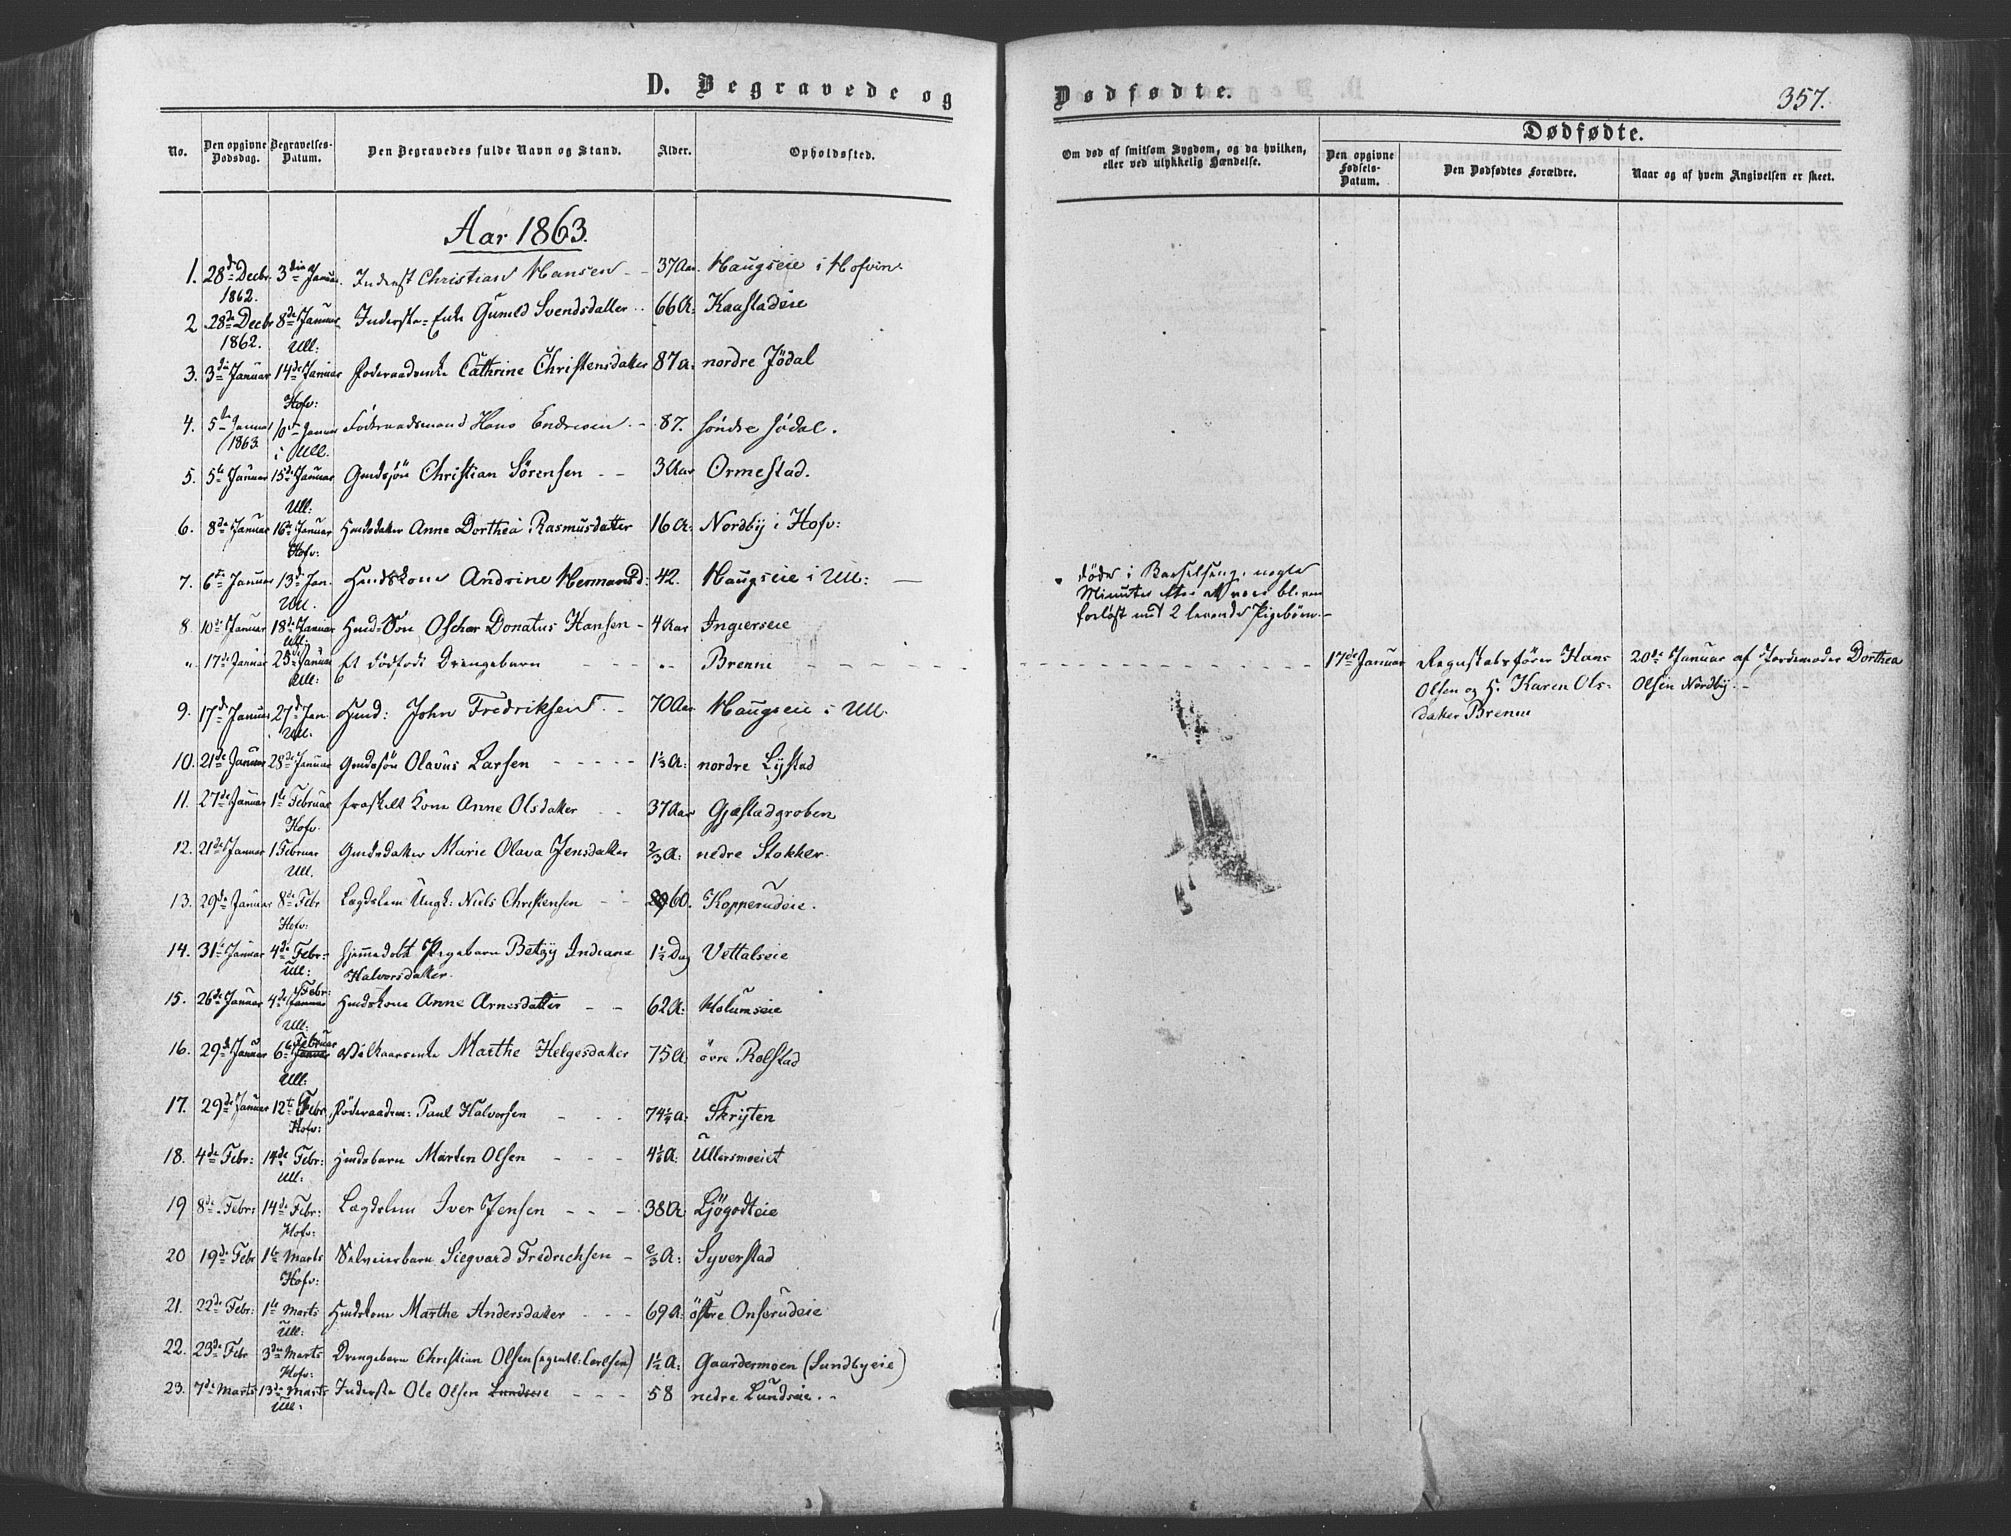 D. Begravede og Dødfødte.
357.
No.
Den opgivne Dødsdag.
Begravelses-Datum.
Den Begravedes fulde Navn og Stand.
Alder.
Opholdssted.
Om død af smitsom Sygdom, og da hvilken, eller ved ulykkelig Hændelse.
Dødfødte.
Den opgivne Fødsels-Datum.
Den Dødfødtes Forældre.
Naar og af hvem Angivelsen er skeet.
Aar 1863.
1. 28de Decbr. 1862. 3die Januar. Inderst Christian Hansen - - 37 Aar. Haugseie i Hofvin.
2 28de Decbr 1862. 8de Januar Ull: Inderste-Enke Gunild Svendsdatter .. 66 A: Kaastadeie
3. 3die Januar 14de Januar Hofv: Föderaadsenke Cathrine Christensdatter 87 A: nordre Jödal
4. 5te Januar 1863. 10de Januar i Ull. Föderaadsmand Hans Endresen - - 87. söndre Jödal.
5. 5te Januar 15de Januar Ull: Gmdssön Christian Sörensen - - 3 Aar Ormestad.
6. 8de Januar 16de Januar Hofv: Hmdsdatter Anne Dorthea Rasmusdatter 16 A: Nordby i Hofv:
7. 6te Januar 13de Jan. Ull. Hmdskone Andrine Hermansd: 42. Haugseie i Ull: — døde i Barselseng, nogle
Minuter efter at være bleven
forløst med 2 levende Pigebörn. -
8. 10de Januar 18de Januar Ull: Hmd: Sön Oscher Donatus Hansen - 4 Aar Ingierseie
" 17de Januar 25de Januar Ull: Et dödfödt Drengebarn - - - - .. Brenne - - - - 17de Januar Regnskabsfører Hans 20de Januar af Jordemoder Dorthea
Olsen og H. Karen Ols- Olsen Nordby. -
datter Brenne
9. 17de Januar 27de Jan. Ull. Hmd: John Fredriksen - 70 Aar Haugseie i Ull.
10. 21de Januar 28de Januar Gmdssön Olavus Larsen - - - - - 1⅓ A: nordre Lystad
11. 27de Januar 1te Februar Hofv. fraskilt Kone Anne Olsdatter - - 37 Aar Gjestadgroben
12. 21de Januar 1 Februar Ull. Gmdsdatter Marie Olava Jensdatter ⅔ A: nedre Stokker.
13. 29de Januar 8de Febr Hofv: Lægdslem Ungk: Niels Christensen - - 60. Kopperudeie.
14. 31te Januar 4de Febr: Ull: hjemmedöbt Pigebarn Betzy Indiana 1½ Dag Vettalseie
Halvorsdatter.
15. 26de Januar 4de Januar Febr: Ull: Hmdskone Anne Arnesdatter - - 62 A: Holumseie
16. 29de Januar 6te Januar Februar Ull: Vilkaarsenke Marthe Helgesdatter 75 A övre Rolstad
17. 29de Januar 12te Febr Hofv: Föderaadsm: Paul Halvorsen - - - 74½ A: Skryten
18. 4de Febr: 14de Febr: Ull: Hmdsbarn Marten Olsen - - - A: Ullersmoeiet
19 8de Febr: 14de Febr: Hofv: Lægdslem Iver Jensen - - - 38 A: Ljögodteie
20 19de Febr 1te Marts Hofv: Selveierbarn Siegvard Fredrichsen - ⅔ A: Syverstad
21. 22de Febr: 1te Marts Ull: Hmdskone Marthe Andersdatter - - - 69 A: östre Onserudeie
22. 23de Febr 3die Marts Hofv: Drengebarn Christian Olsen (egentl: Carlsen) 1½ A: Gaardermoen (Sundbyeie)
23. 7de Marts 13de Marts Ull: Inderste Ole Olsen Lundseie - - - 58 nedre Lundseie. -